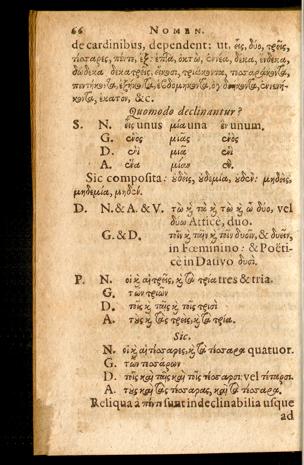 66 NOMEN.
de cardinibus, dependent: ut, εἷς, δύο, τρεῖς,
τέσσαρες, πέντε, ἓξ, ἑπτὰ, ὀκτὼ, ἐννέα, δέκα, ἕνδεκα,
δώδεκα δεκατρεῖς, εἴκοσι, τριάκοντα, τεσσαράκοντα,
πεντήκοντα, ἑξήκοντα, ἑβδομήκοντα, ὀγδοήκοντα, ἐννενή-
κοντα, ἑκατὸν, &c.
Quomodo declinantur?
S. N. εἷς unus μία una ἓν unum.
G. ἑνὸς μιᾶς ἑνὸς
D. ἑνὶ μιᾷ ἑνὶ
A. ἕνα μίαν ἓν.
Sic composita: οὐδεὶς, οὐδεμία, οὐδὲν: μηδεὶς,
μηδεμία, μηδέν.
D. N. & A. & V. τὼ ϗ τὰ ϗ τὼ ϗ ὦ δύο, vel
δύω Atticè, duo.
G. & D. τοῖν ϗ ταῖν ϗ τοῖν δυοῖν, & δυεῖν,
in Fœminino: & Poëti-
cè in Dativo δυσί.
P. N. οἱ ϗ αἱ τρεῖς, ϗ τὰ τρία tres & tria.
G. τῶν τριῶν
D. τοῖς ϗ ταῖς ϗ τοῖς τρισὶ
A. τοὺς ϗ τὰς τρεῖς, ϗ τὰ τρία.
Sic.
N. οἱ ϗ αἱ τέσσαρες, ϗ τὰ τέσσαρα quatuor.
G. τῶν τεσσάρων
D. τοῖς καὶ ταῖς καὶ τοῖς τέσσαρσι vel τέταρσι.
A. τοὺς καὶ τὰς τέσσαρας, καὶ τὰ τέσσαρα.
Reliqua à πέντε sunt indeclinabilia usque
ad